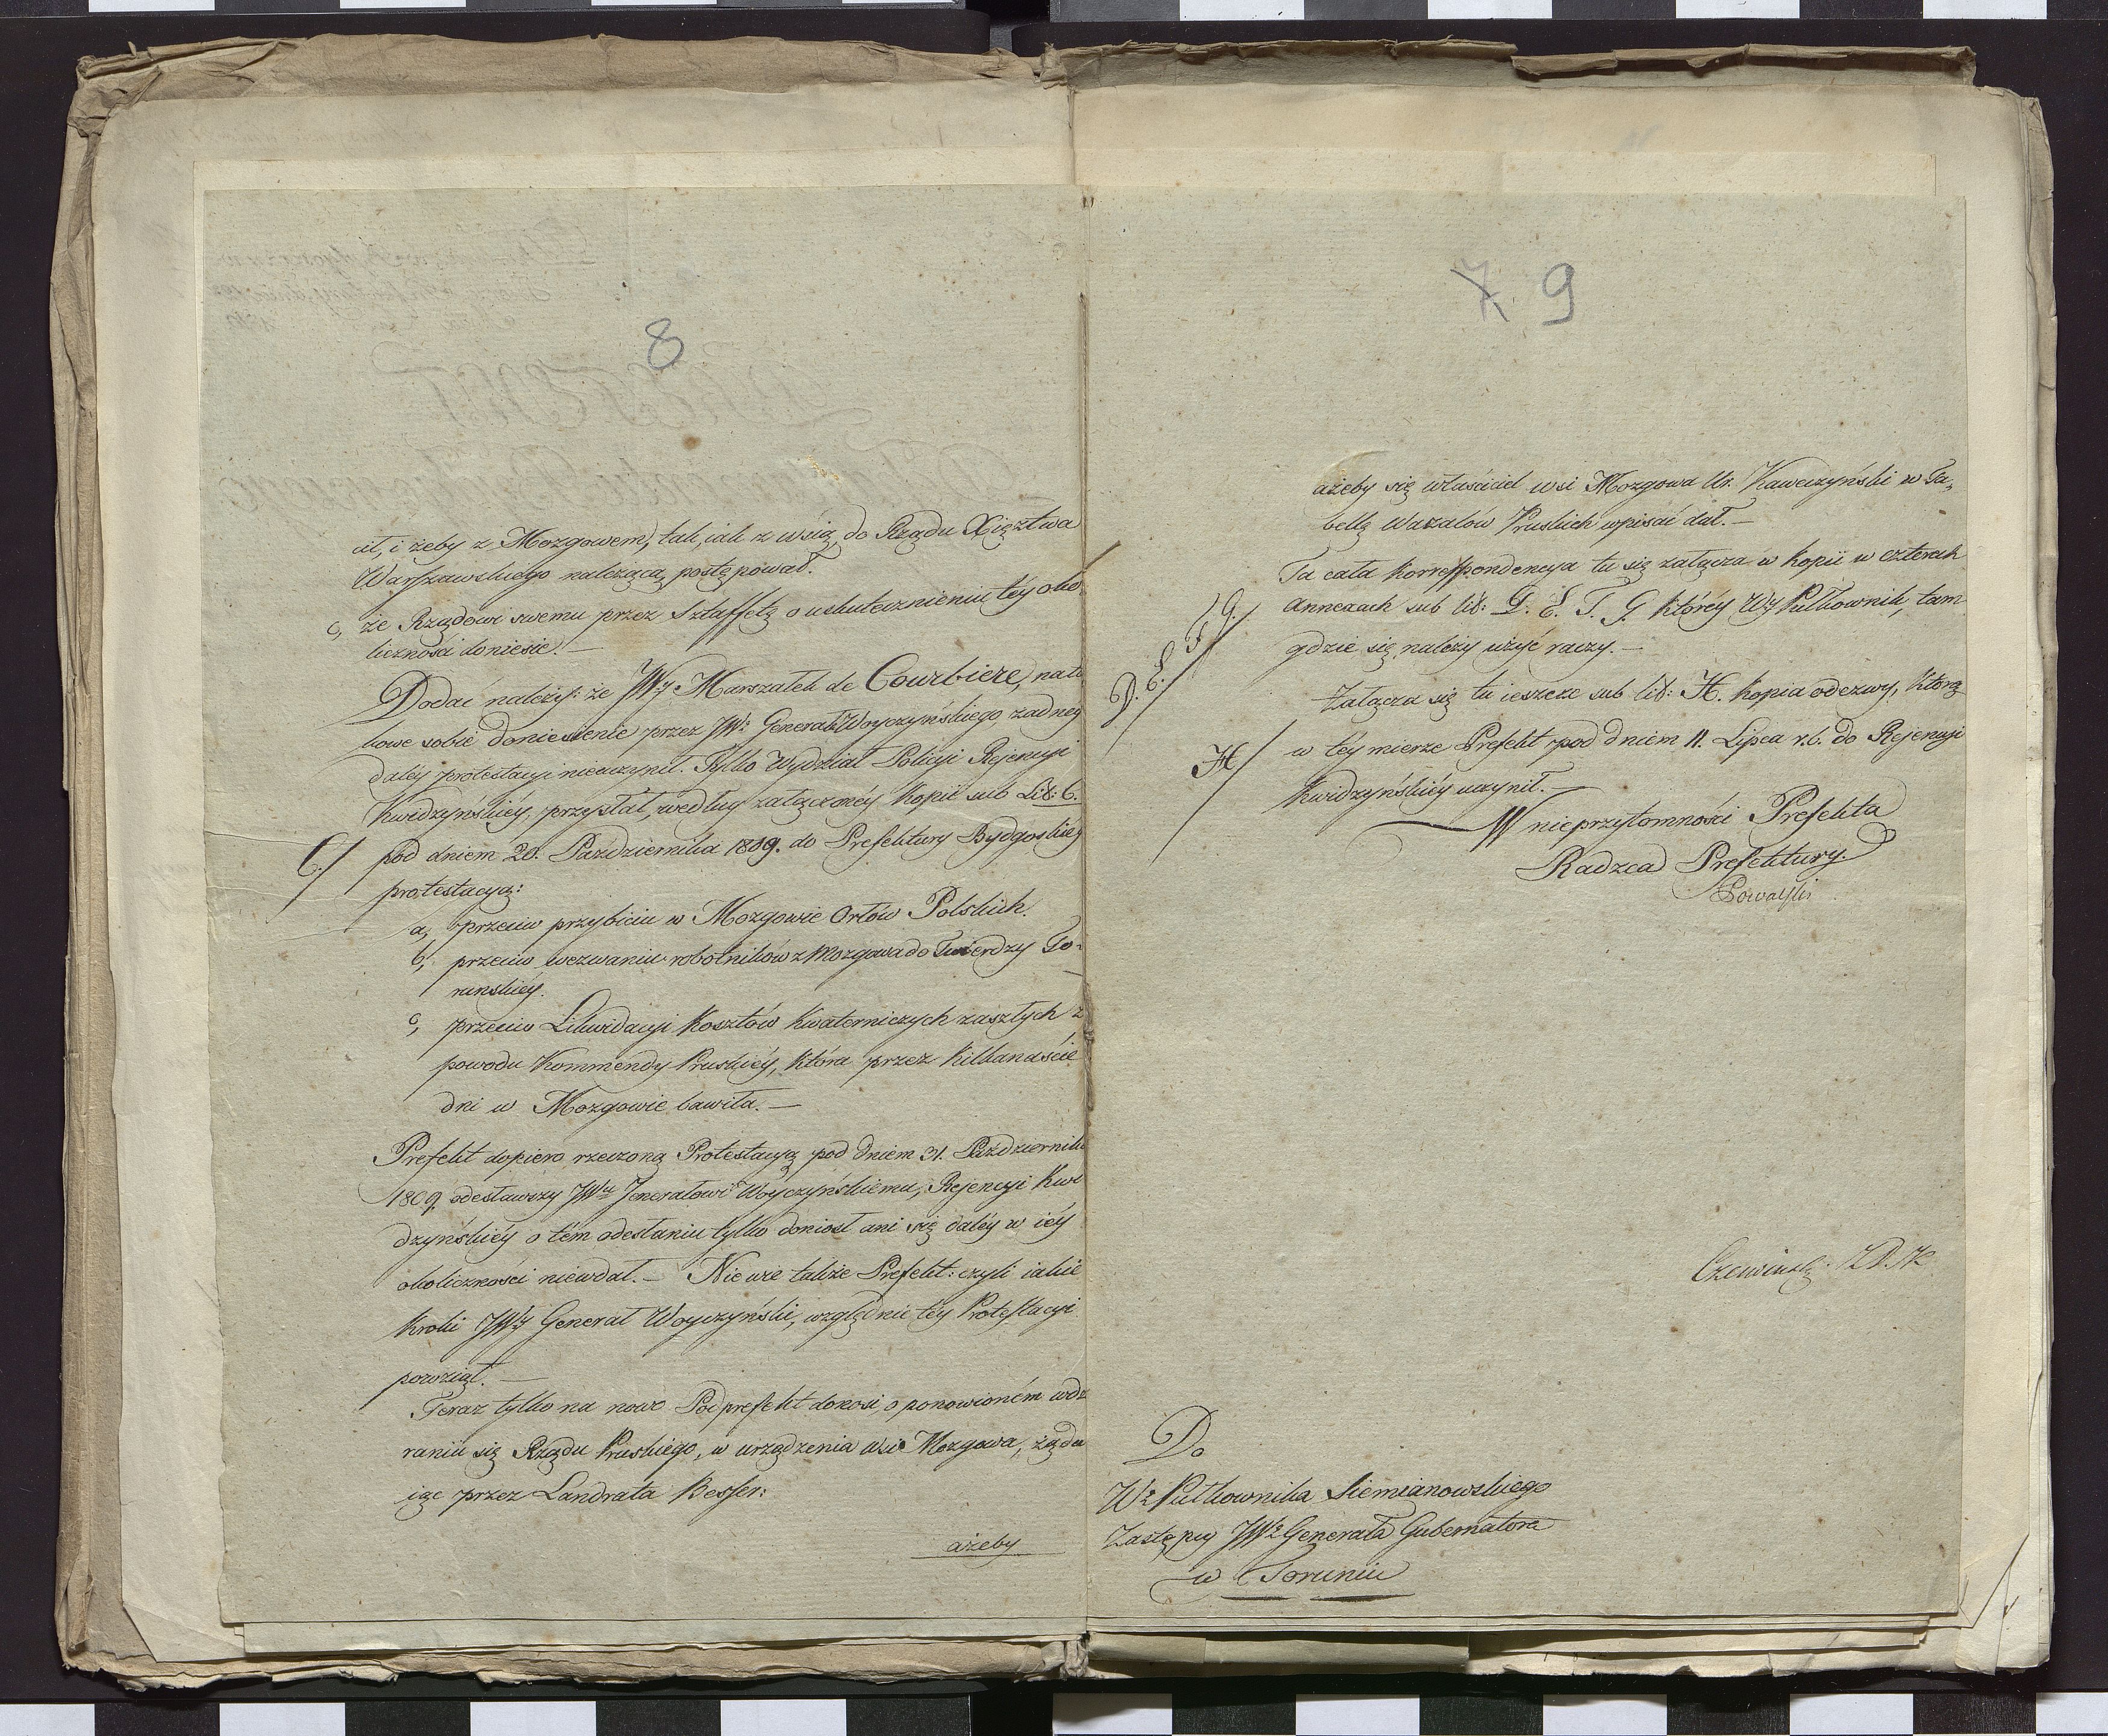 8
cił, i żeby z Mozgowem, tak, iak z wsią, do Rządu Xięztwa
Warszawskiego należącą, postępował.
c, że Rządowi swemu przez Sztaffetę o uskutecznieniu téy oko
liczności doniesie. —
Dodać należy: że JWy Marszałek de Courbiere, nato
kowe sobie doniesienie przez JWo Generała Woyczyńskiego, żadney
daléy protestacyi nieuczynił. Tylko Wydział Policyi Rejencyi
Kwidzyńskiéy, przysłał, według załączonéy Kopii sub Lit: C.
C./ pod dniem 20. Października 1809. do Prefektury Bydgoskiéy
protestacyą:
a, przeciw przybiciu w Mozgowie Orłów Polskich.
b, przeciw wezwaniu robotników z Mozgowa do Twierdzy To-
runskiéy.
c, przeciw Likwidacyi Kosztów Kwaterniczych zaszłych z
powodu Kommendy Pruskiéy, która przez Kilkanaście
dni w Mozgowie bawiła. —
Prefekt dopiero rzeczoną Protestacyą pod dniem 31. Październik
1809. odesławszy JWu Jenerałowi Woyczyńskiemu, Rejencyi Kwi
dzyńskiéy o tém odesłaniu tylko doniosł ani się daléy w iéy
okoliczności niewdał. — Nie wie także Prefekt: czyli iakie
Kroki JWy Generał Woyczyński, względnie téy Protestacyi
powziął. —
Teraz tylko na nowo Podprefekt donosi, o ponowioném wdz
raniu się Rządu Pruskiego, w urządzenia wsi Mozgowa, żąda
iąc przez Landrata Besser:
ażeby
7 9
ażeby się właściciel wsi Mozgowa Ur. Kawczyński w Ta,
bellę Wazalów Pruskich wpisać dał. —
Ta cała Korrespondencya tu się załącza w Kopii w czterech
D. E. F. G./ Annexach sub lit: D. E. F. G. Któréy Wy Pułkownik, tam
gdzie się należy użyć raczy. —
Załącza się tu ieszcze sub lit: H. Kopia odezwy, Którą
H/ w téy mierze Prefekt pod dniem 11. Lipca r.b. do Rejencyi
Kwidzyńskiéy uczynił. —
W nieprzytomności Prefekta
Radzca Prefektury.
Powalski
Do
Wo Pułkownika Siemianowskiego
Zastępcy JWo Generała Gubernatora
w Toruniu